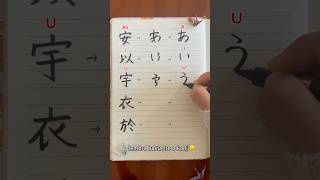 U
安 → あ → あ
以 → い → い
宇 → う → う
衣 → →
於 → →
lembra bastante o kanji